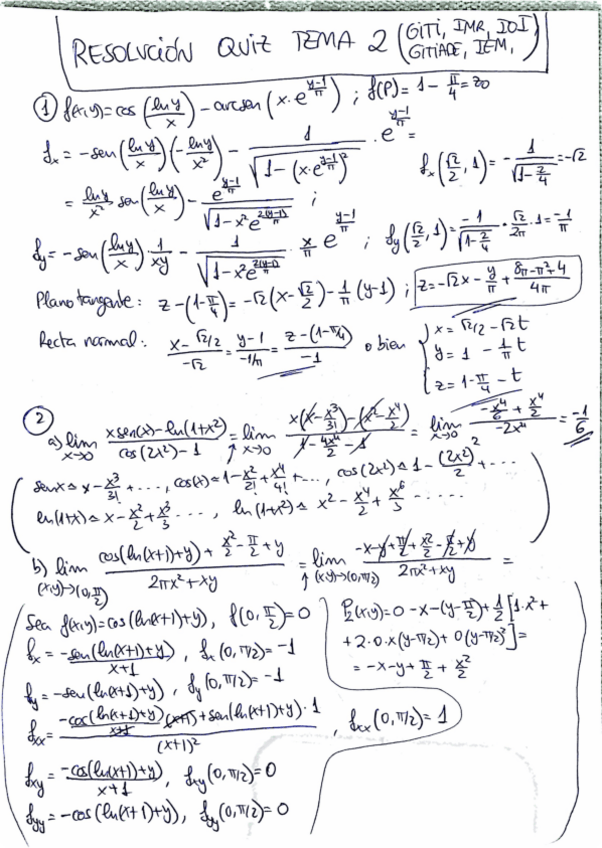 RESOLUCIÓN QUIZ TEMA 2 (GITI, IMR, IOI, GITIADE, IEM,)
① f(x,y)=cos(ln y/x) - arcsen(x·e^((y-1)/π)) ; f(P)=1-π/4=z₀
fₓ = -sen(ln y/x)(-ln y/x²) - 1/√(1-(x·e^((y-1)/π))²) · e^((y-1)/π) =
= ln y/x² sen(ln y/x) - e^((y-1)/π)/√(1-x²e^(2(y-1)/π)) ; fₓ(√2/2,1) = -1/√(1-2/4) = -√2
f_y = -sen(ln y/x) 1/(xy) - 1/√(1-x²e^(2(y-1)/π)) · x/π e^((y-1)/π) ; f_y(√2/2,1) = -1/√(1-2/4) · √2/(2π) · 1 = -1/π
Plano tangente: z-(1-π/4) = -√2(x-√2/2) - 1/π (y-1) ; z=-√2x - y/π + (8π-π²+4)/(4π)
Recta normal: (x-√2/2)/(-√2) = (y-1)/(-1/π) = (z-(1-π/4))/(-1) o bien { x = √2/2 - √2t
y = 1 - 1/π t
z = 1-π/4 - t
②
a) lim x→0 (x sen(x) - ln(1+x²))/(cos(2x²)-1) = lim x→0 (x(x-x³/3!)-(x²-x⁴/2))/(1-4x⁴/2-1) = lim x→0 (-x⁴/6 + x⁴/2)/(-2x⁴) = -1/6
(sen x ≏ x-x³/3!+..., cos(x) ≏ 1-x²/2!+x⁴/4!+..., cos(2x²) ≏ 1-(2x²)²/2+...
ln(1+x) ≏ x-x²/2+x³/3 ..., ln(1+x²) ≏ x²-x⁴/2+x⁶/3 .....)
b) lim (x,y)→(0,π/2) (cos(ln(x+1)+y)+x²/2-π/2+y)/(2πx²+xy) = lim (x,y)→(0,π/2) (-x-y+π/2+x²/2-π/2+y)/(2πx²+xy) =
Sea f(x,y)=cos(ln(x+1)+y), f(0,π/2)=0
fₓ = -sen(ln(x+1)+y)/(x+1), fₓ(0,π/2)=-1
f_y = -sen(ln(x+1)+y), f_y(0,π/2)=-1
fₓₓ = (-cos(ln(x+1)+y)/(x+1) (x+1)+sen(ln(x+1)+y)·1)/(x+1)², fₓₓ(0,π/2)=1
f_xy = -cos(ln(x+1)+y)/(x+1), f_xy(0,π/2)=0
f_yy = -cos(ln(x+1)+y), f_yy(0,π/2)=0
P₂(x,y)=0-x-(y-π/2)+1/2[1·x²+
+2·0·x(y-π/2)+0(y-π/2)²]=
= -x-y+π/2+x²/2